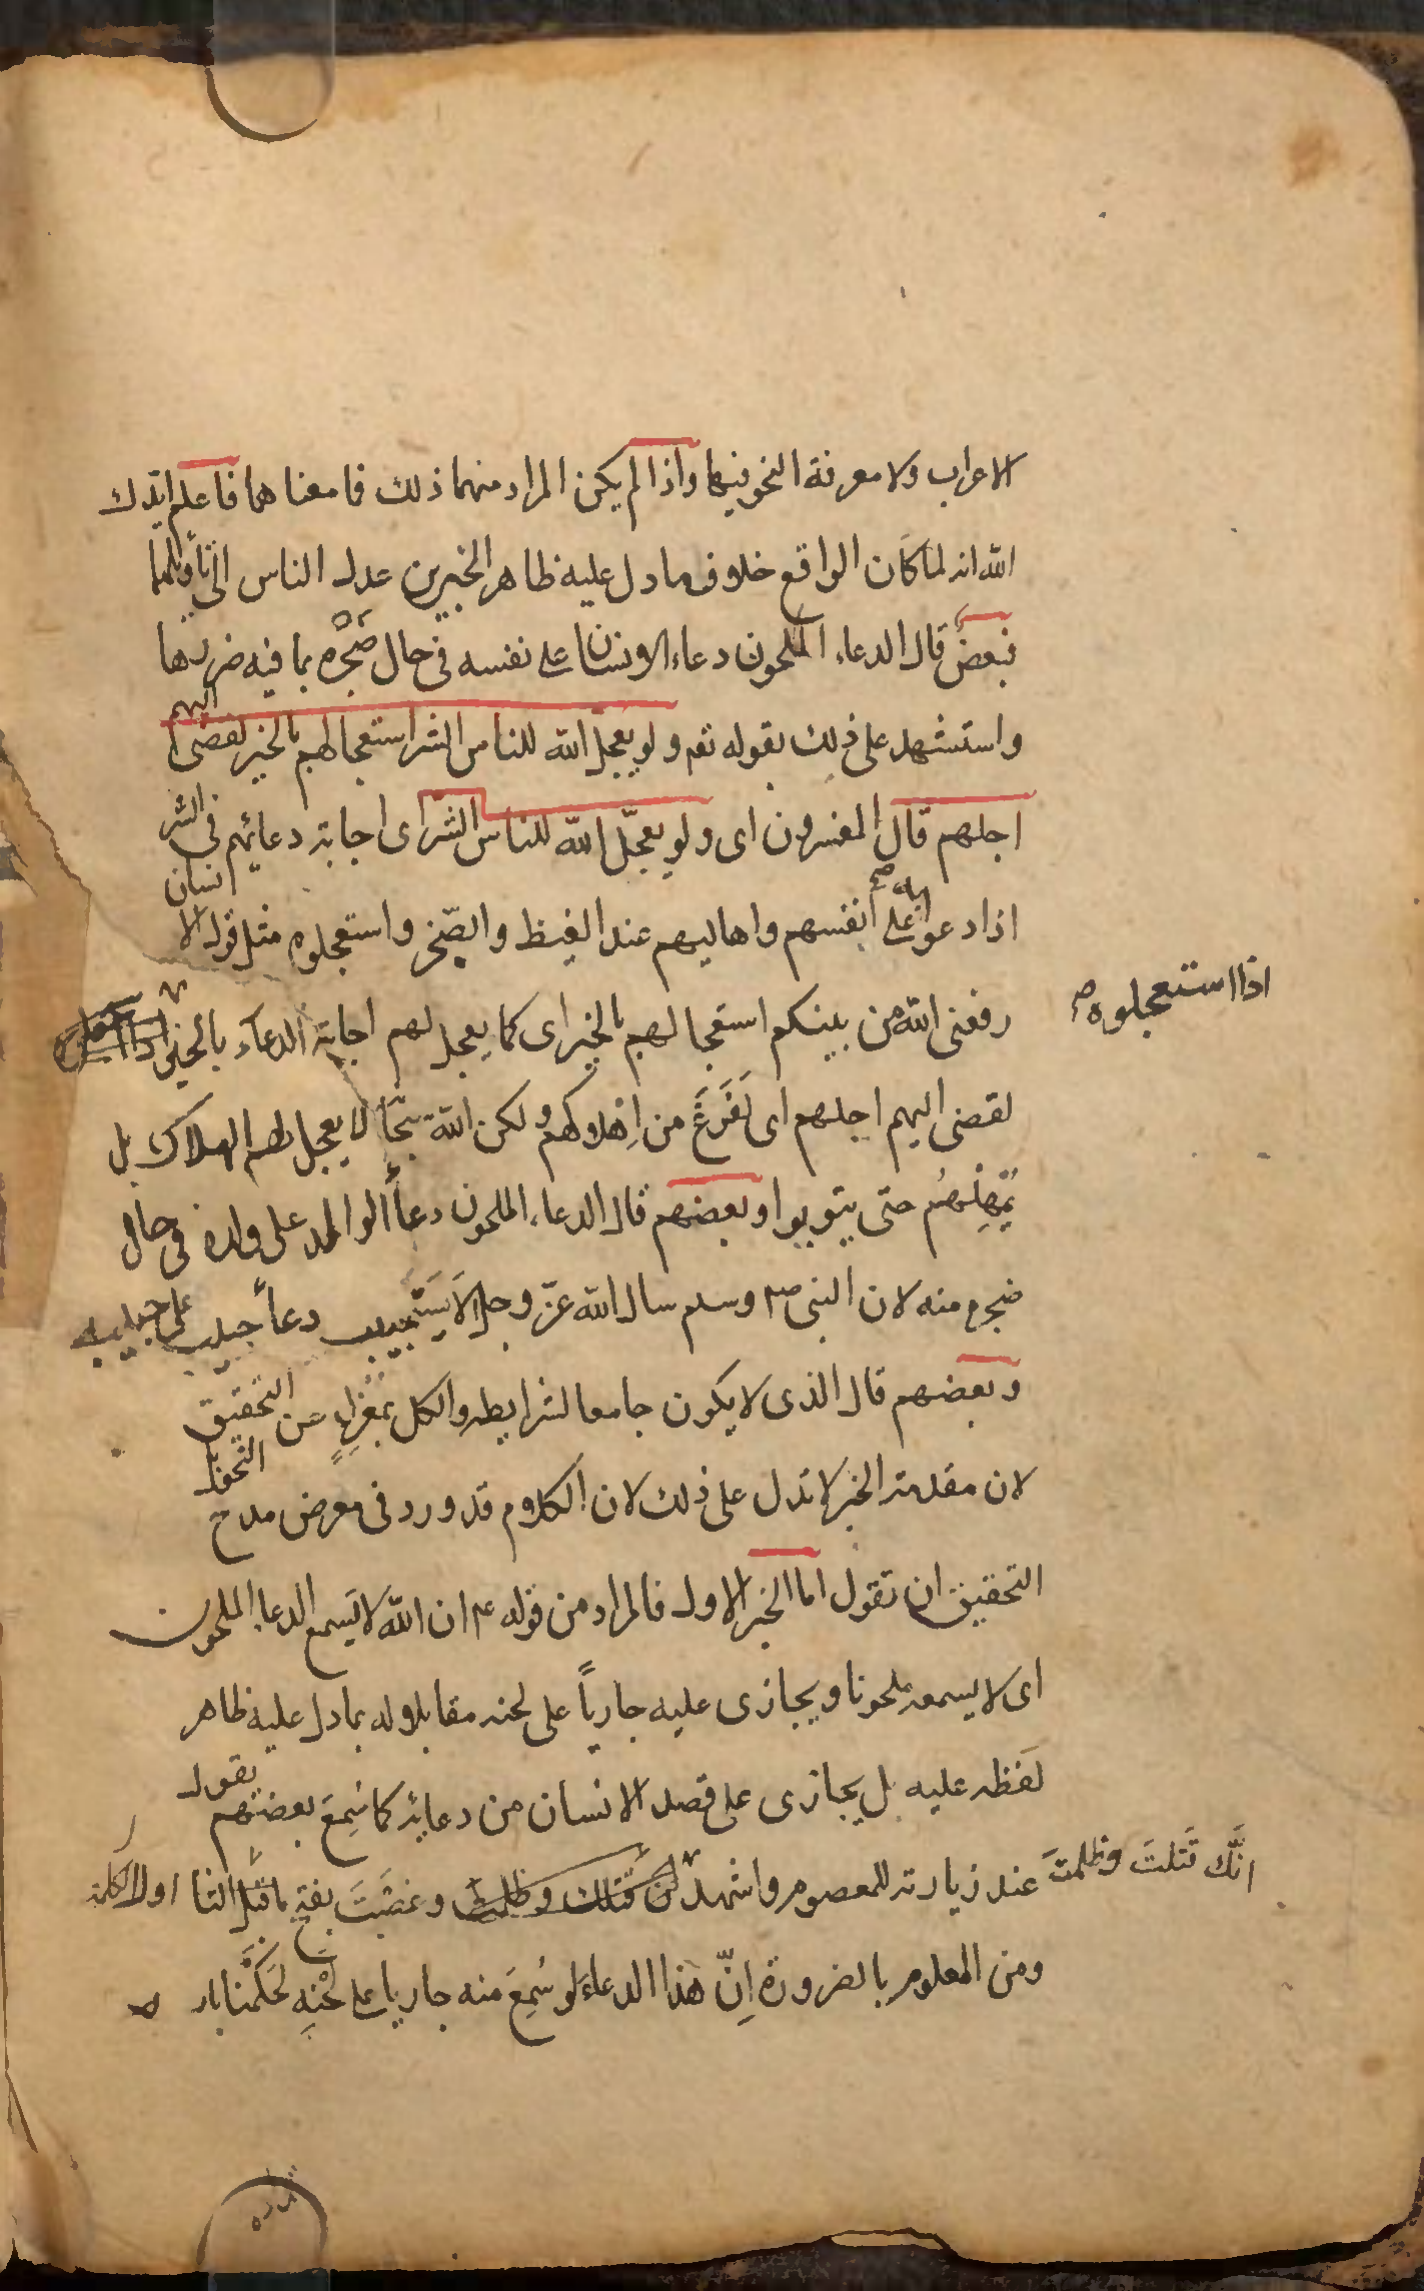 الاعراب ولا معرفة النحو فيهما واذا لم يكن المراد منهما ذلك فما معناهما فاعلم ايّدك
الله انه لما كان الواقع خلاف ما دل عليه ظاهر الخبرين عدل الناس الى تأويلهما
فبعضٌ قال الدعاء الملحون دعاء الانسان على نفسه في حال ضَجْره بما فيه ضررها
واستشهد على ذلك بقوله تعم ولو يعجّل الله للناس الشر استعجالهم بالخير لقضى اليهم
اجلهم قال المفسرون اى ولو يعجّل الله للناس الشر اى اجابة دعائهم في الشر
اذا دعوا به على انفسهم واهاليهم عند الغيظ والضجر واستعجلوه مثل قول الانسان
رفعنى الله من بينكم استعجالهم بالخير اى كما يعجل لهم اجابة الدعاء بالخير
اذا استعجلوه صح
لقضى اليهم اجلهم اى لَفَرَغَ من اِهْلاكهم ولكن الله لا يعجل لهم الهلاك بل
يُمْهِلُهُم حتى يتوبوا وبعضهم قال الدعاء الملحون دعاء الوالد على ولده في حال
ضجره منه لان النبى ص وسلم سال الله عزّ وجل الا يَسْتَجيب دعاءَ حبيب على حبيبه
وبعضهم قال الذى لا يكون جامعا لشرايطه والكل بمَعْزِلٍ عن التحقيق
لان مقدمة الخبر لا تدل على ذلك لان الكلام قد ورد فى معرض مدح
التحقيق ان تقول اما الخبر الاول فالمراد من قوله ع ان الله لا يسمع الدعاء الملحون
اى لا يسمعه ملحونا ويجازى عليه جارياً على لحنه مقابلا له بما دل عليه ظاهر
لَفظه عليه بل يجازى على قصد الانسان من دعائه كما سُمِعَ بعضهم يقول
عند زيارته للمعصوم واشهد
انَّك قَتَلتَ وظلمتَ
وغَصَبْتَ بفتح
ومن المعلوم بالضرورة اِنّ هذا الدعاءَ لو سُمِعَ منه جاريا على لَحْنِهِ لَحَكَمْنا